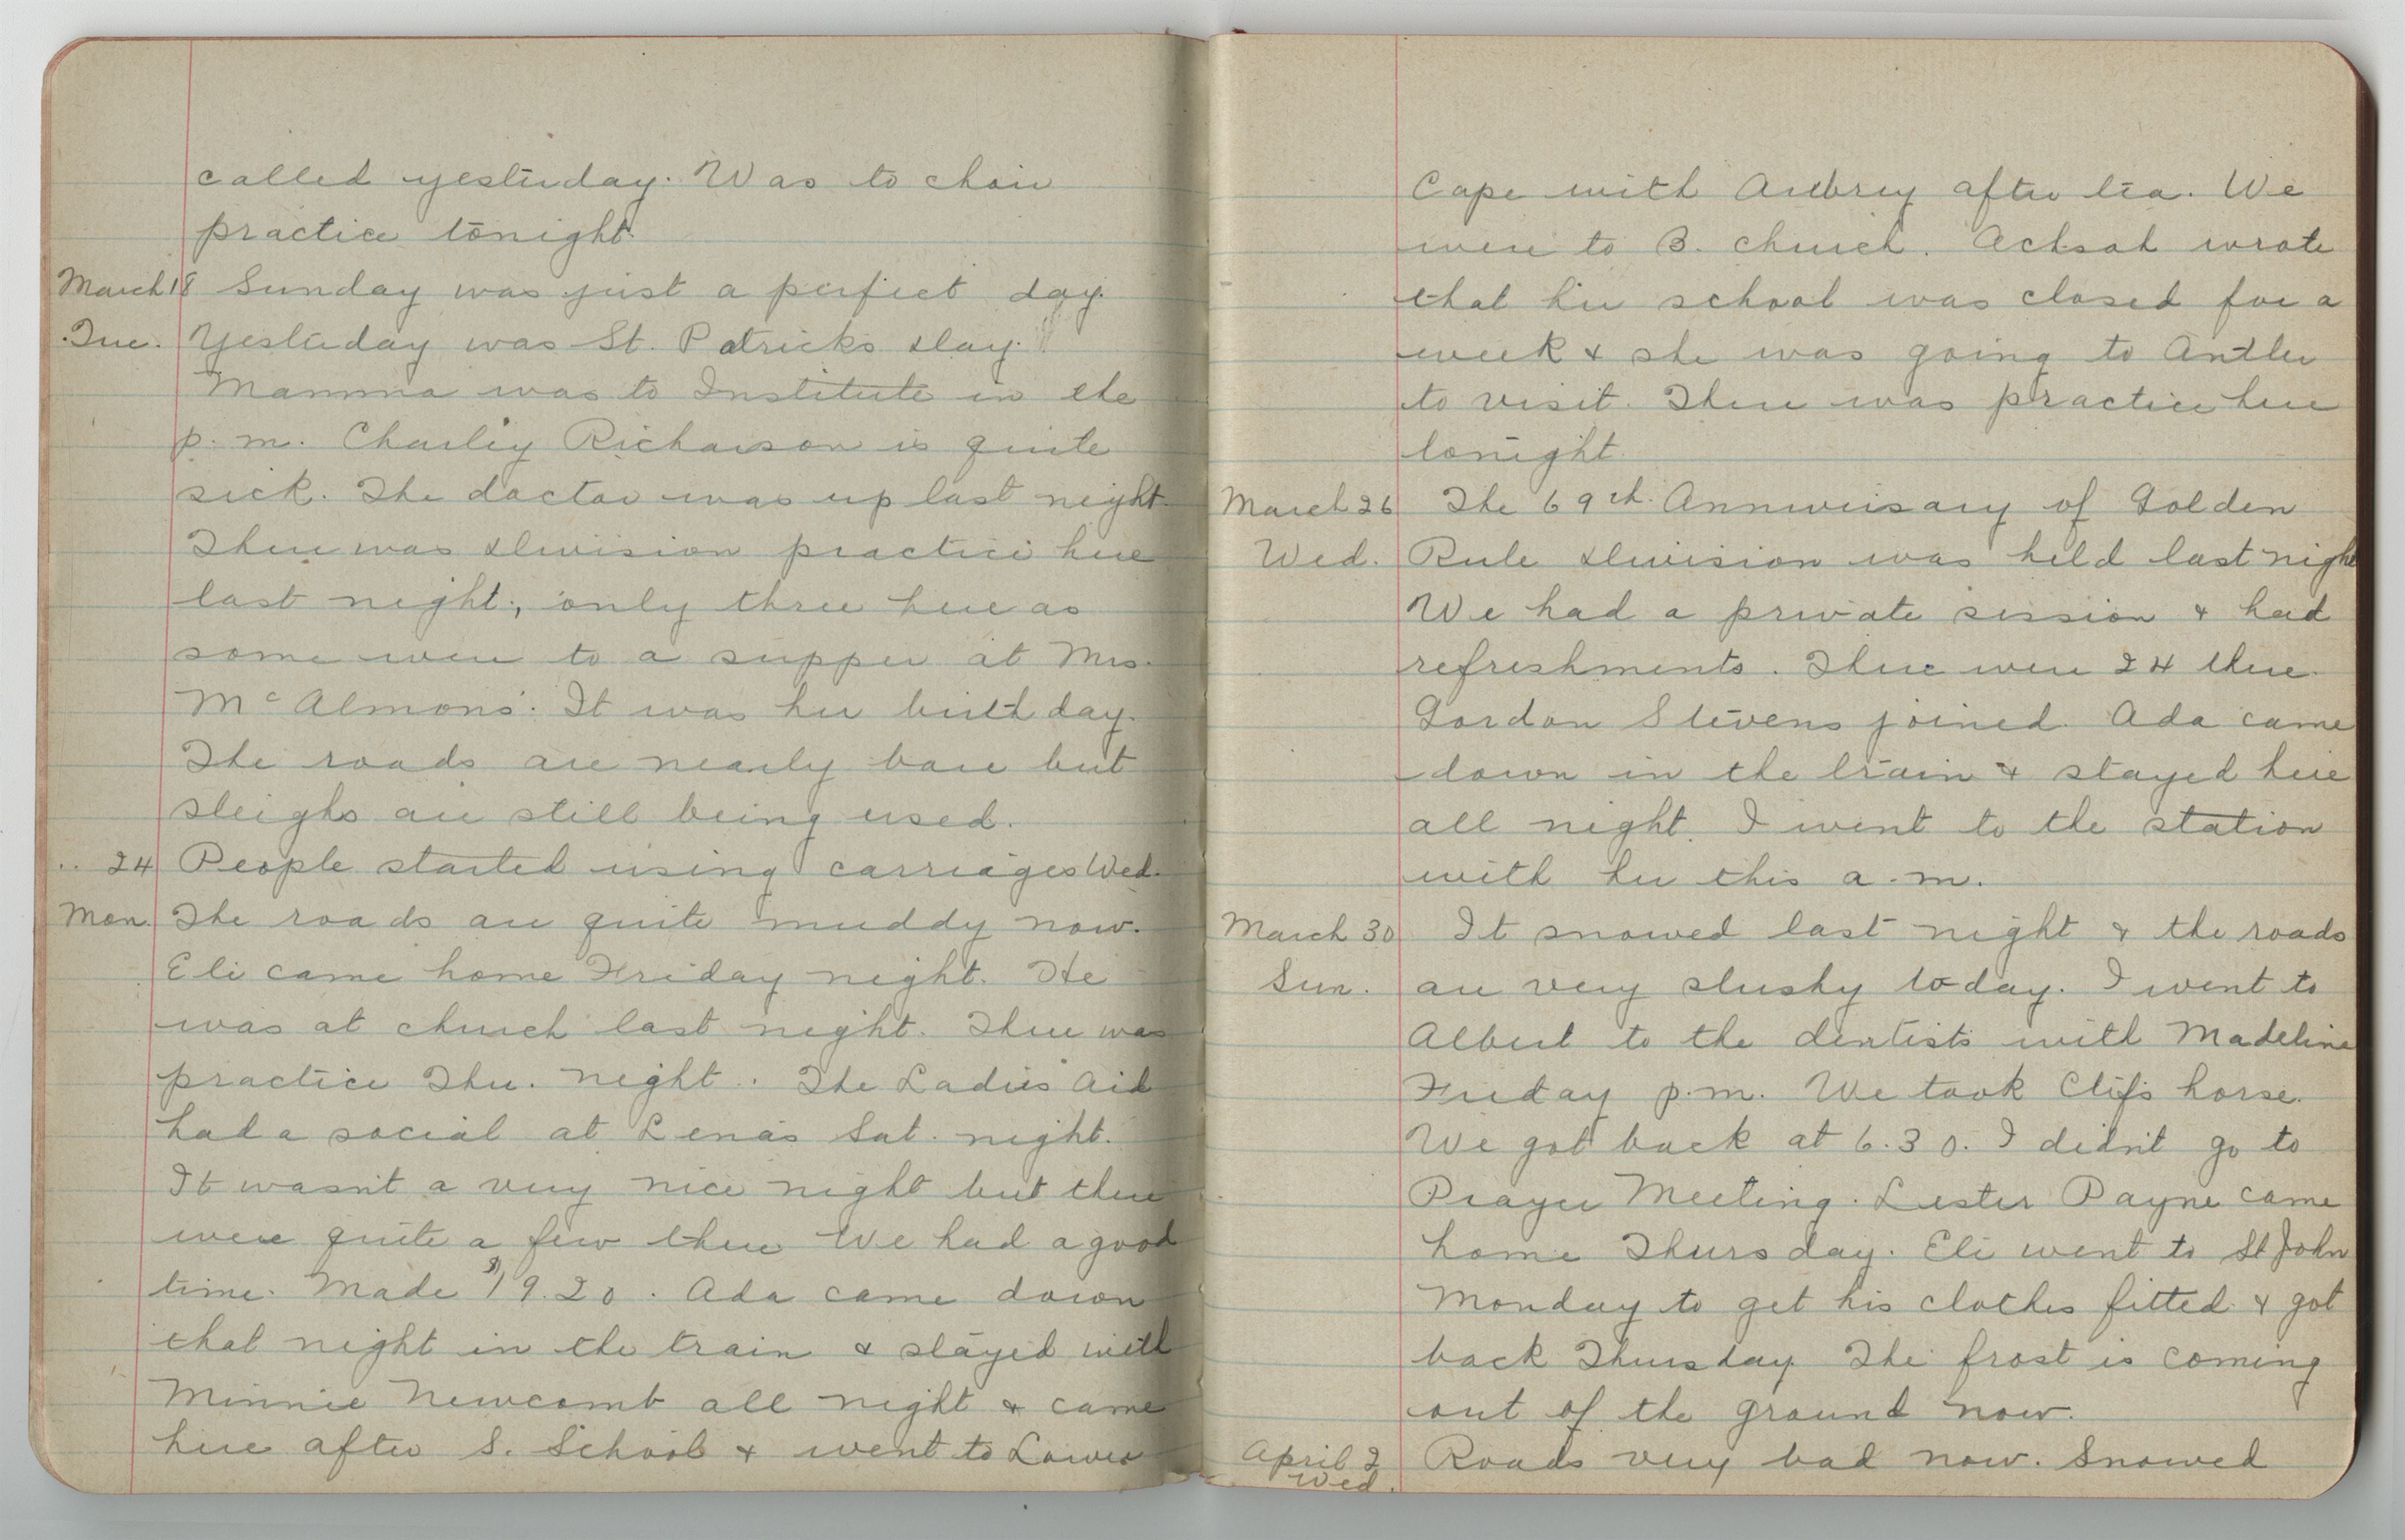 called yesterday. Was to choir
practice tonight.
March 18 Sunday was just a perfect day.
Tue. Yesterday was St. Patricks day.
Mamma was to Institute in the
p.m. Charley Richarson is quite
sick. The doctor was up last night.
There was division practice here
last night, only three here as
some were to a supper at Mrs.
McAlmons. It was her birthday.
The roads are nearly bare but
sleighs are still being used.
.. 24 People started using carriages Wed.
Mon. The roads are quite muddy now.
Eli came home Friday night. He
was at church last night. There was
practice Thu. night. The Ladies Aid
had a social at Lena's Sat. night.
It wasn't a very nice night but there
were quite a few there We had a good
time. Made $19.20. Ada came down
that night in the train & stayed with
Minnie Newcomb all night & came
here after S. School & went to Lower
Cape with Aubrey after tea. We
were to B. church. Achsah wrote
that her school was closed for a
week & she was going to Antler
to visit. There was practice here
tonight.
March 26 The 69th Anniversary of Golden
Wed. Rule division was held last night
We had a private session & had
refreshments. There were 24 there.
Gordon Stevens joined. Ada came
down in the train & stayed here
all night. I went to the station
with her this a.m.
March 30 It snowed last night & the roads
Sun. are very slushy today. I went to
Albert to the dentists with Madeline
Friday p.m. We took Clif's horse.
We got back at 6.30. I didn't go to
Prayer Meeting. Lester Payne came
home Thursday. Eli went to St John
Monday to get his clothes fitted & got
back Thursday. The frost is coming
out of the ground now.
April 2 Roads very bad now. Snowed
Wed.